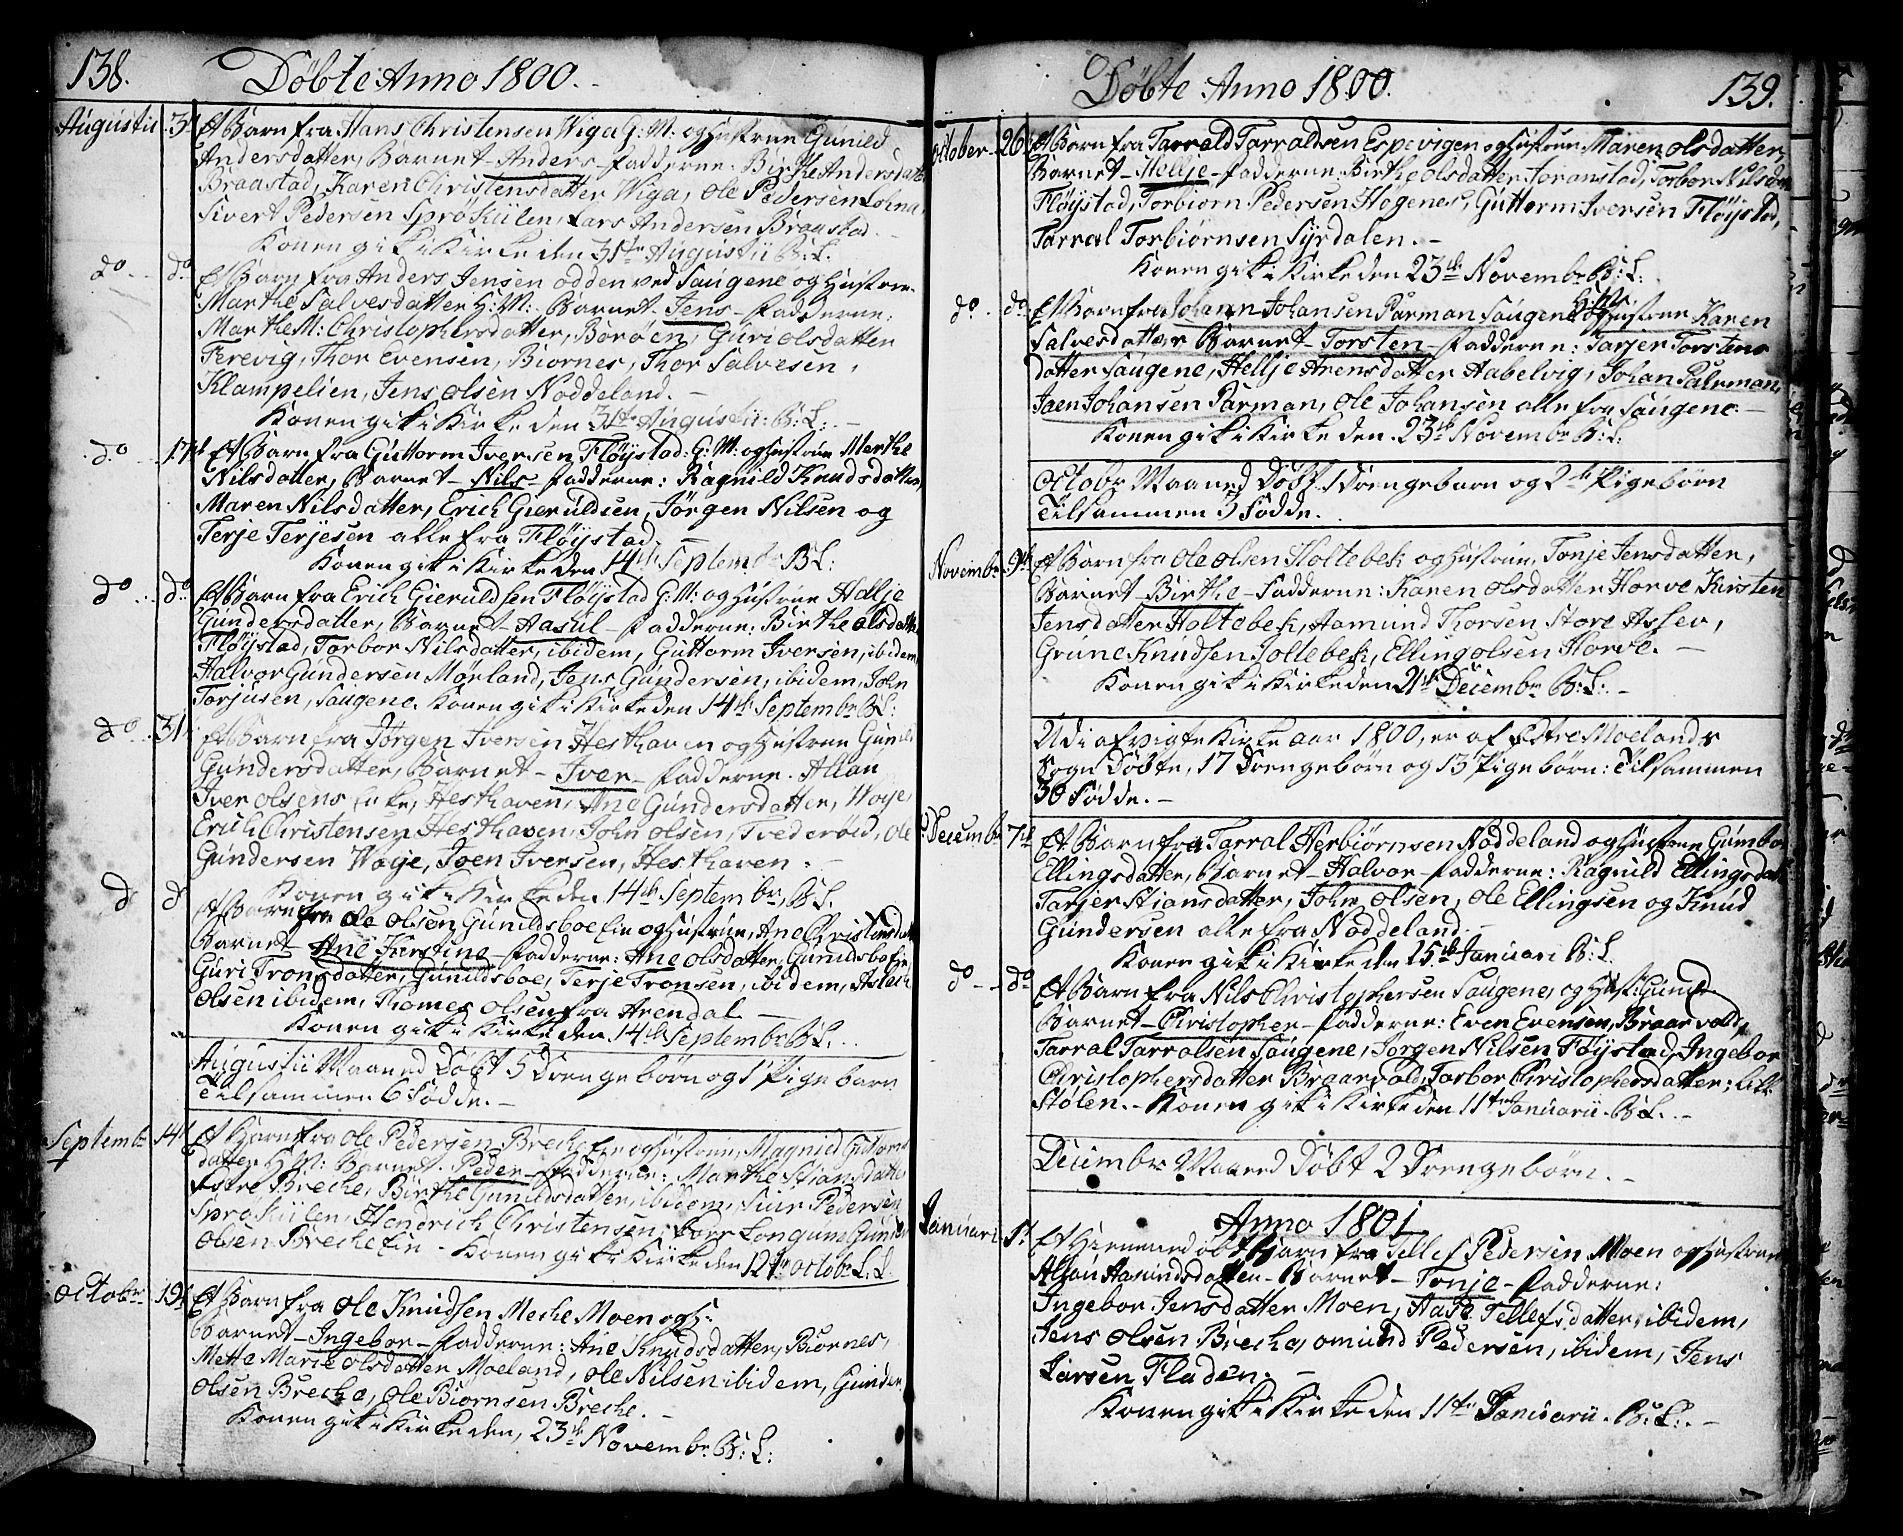 138. Döbte Anno 1800.
Augustii 3d Et Barn fra Hans Christensen Wiga G: M: og Hustrue Gunild
Andersdatter, Barnet - Anders - Fadderne: Birthe Andersdatter
Braastad, Karen Christensdatter Wiga, Ole Pedersen Lofna,
Sivert Pedersen Sprökiilen, Lars Andersen Braastad.
Konen gik i Kirke den 31te Augustii B: L:
do do Et Barn fra Anders Jensen Odden ved Saugene og Hustrue
Marthe Salvesdatter H: M: Barnet - Jens - Fadderne:
Marthe M: Christophersdatter, Boröen, Guri Olsdatter
Ferevig, Thor Evensen, Biornes, Thor Salvesen,
Klampelien, Jens Olsen Noddeland.
Konen gik i Kirke den 31te Augustii: B: L:
do 17d Et Barn fra Guttorm Iversen Flöystad. G: M: og Hustrue Marthe
Nilsdatter, Barnet - Nils - Fadderne: Ragnild Knudsdatter,
Maren Nilsdatter, Erich Gieruldsen, Jörgen Nilsen og
Terje Terjesen alle fra Flöystad.
Konen gik i Kirke den 14de Septembr B: L:
do do Et Barn fra Erich Gieruldsen Flöystad G: M: og Hustrue Hellje
Gundersdatter, Barnet - Aasul - Fadderne: Birthe Olsdatter
Flöystad, Torbor Nilsdatter, ibidem, Guttorm Iversen, ibidem,
Halvor Gundersen Mörland, Jens Gundersen, ibidem, John
Torjusen, Saugene. Konen gik i Kirke den 14de Septembr B: L:
do 31 Et Barn fra Jörgen Iversen Hesthaven og Hustrue Gunild
Gundersdatter, Barnet - Iver - Fadderne: Aslau
Iver Olsens Enke, Hesthaven, Ane Gundersdatter, Woje,
Erich Christensen Hesthaven, John Olsen, Tveder, Ole
Gundersen Woje, Joen Iversen, Hesthaven.
Konen gik i Kirke den 14de Septembr B: L:
d d Et Barn fra Ole Olsen Gunildsboe Eie og Hustrue, Ane Christensdatter
Barnet - Ane Kirstine - Fadderne: Ane Olsdatter, Gunildsboe
Guri Tronsdatter, Gunildsboe, Terje Tronsen, ibidem, Aslach
Olsen ibidem, Thomes Olsen fra Arendal.
Konen gik i Kirke den 14de Septembr B: L:
Augustii Maaned Döbt 5 Drengebörn og 1 Pigebarn
Tilsammen 6 Födde.
Septembr 14d Et Barn fra Ole Pedersen Breche og Hustrue, Magnild Guttorms
datter H: M: Barnet - Peder - Fadderne: Marthe Stiansdatter
Breche, Birthe Gunildsdatter, ibidem, Siur Pedersen
Sprökiilen, Hendrich Christensen, Gunder
Olsen Breche Eie - Konen gik i Kirke den 12te Octobr B: L:
Octobr 19d Et Barn fra Ole Knudsen Meche Moen og H:
Barnet - Ingebor - Fadderne: Ane Knudsdatter, Biornes,
Mette Marie Olsdatter Moeland, Ole Nilsen ibidem, Gunder
Olsen Breche, Ole Biornsen Breche.
Konen gik i Kirke den, 23de Novembr B: L:
Döbte Anno 1800. 139.
October 26d Et Barn fra Tarrald Tarraldsen Espevigen og Hustrue Maren Olsdatter,
Barnet - Hellje - Fadderne: Birthe Olsdatter Joranstad, Torbor Nilsdatter
Flöystad, Torbiorn Pedersen Högenes, Guttorm Iversen Flöystad,
Tarral Torbiörnsen Syrdalen.
Konen gik i Kirke den 23de Novembr B: L:
do do Et Barn fra Johann Johansen Parman Saugene og Hustrue Karen
Salvesdatter Barnet - Torsten - Fadderne: Tarjer Torstens
datter Saugene, Hellje Arensdatter Aabelvig, Johan Parman,
Joen Johansen Parman, Ole Johansen alle fra Saugene.
Konen gik i Kirke den 23de Novembr B: L:
Octobr Maaned Döbt 1 Drengebarn og 2de Pigebörn
Tilsammen 3 Födde.
Novembr 9d Et Barn fra Ole Olsen Holtebek og Hustrue, Tonje Jensdatter,
Barnet - Birthe - Fadderne: Karen Olsdatter Horve Kirsten
Jensdatter Holtebek, Aamund Thorsen Store Assev,
Grune Knudsen Holtebek, Elling Olsen Horve.
Konen gik i Kirke den 21de Decembr B: L:
Udi afvigte Kirke aar 1800, er af Östre Moelands
Sogn Döbte, 17 Drengebörn og 13 Pigebörn: Tilsammen
30 Födde.
Decembr 7d Et Barn fra Tarral Herbiörnsen Noddeland og Hustrue Gumbor
Ellingsdatter, Barnet - Halvor - Fadderne: Ragnild Ellingsdatter
Tarjer Stiansdatter, John Olsen, Ole Ellingsen og Knud
Gundersen alle fra Noddeland.
Konen gik i Kirke den 15de Januari B: L:
do do Et Barn fra Nils Christophersen Saugene, og Hust: Gunild
Barnet - Christopher - Fadderne: Even Evensen, Braarvold,
Tarral Tarralsen Saugene, Jörgen Nilsen Föystad, Ingebor
Christophersdatter Braarvold, Torbor Christophersdatter: Lille
Stölen. - Konen gik i Kirke den 11te Januarii. B: L:
Decembr Maaned Döbt 2 Drengebörn.
Anno 1801
Januari 1d Et Hiemmedöbt Barn fra Tellef Pedersen Moen og Hustrue
Aslau Aasundsdatter - Barnet - Tonje - Fadderne:
Ingebor Jensdatter Moen, Aase Tellefsdatter, ibidem,
Jens Olsen Breche, Omund Pedersen, ibidem, Jens
Larsen Fladen.
Konen gik i Kirke den 11te Januarii. B: L: